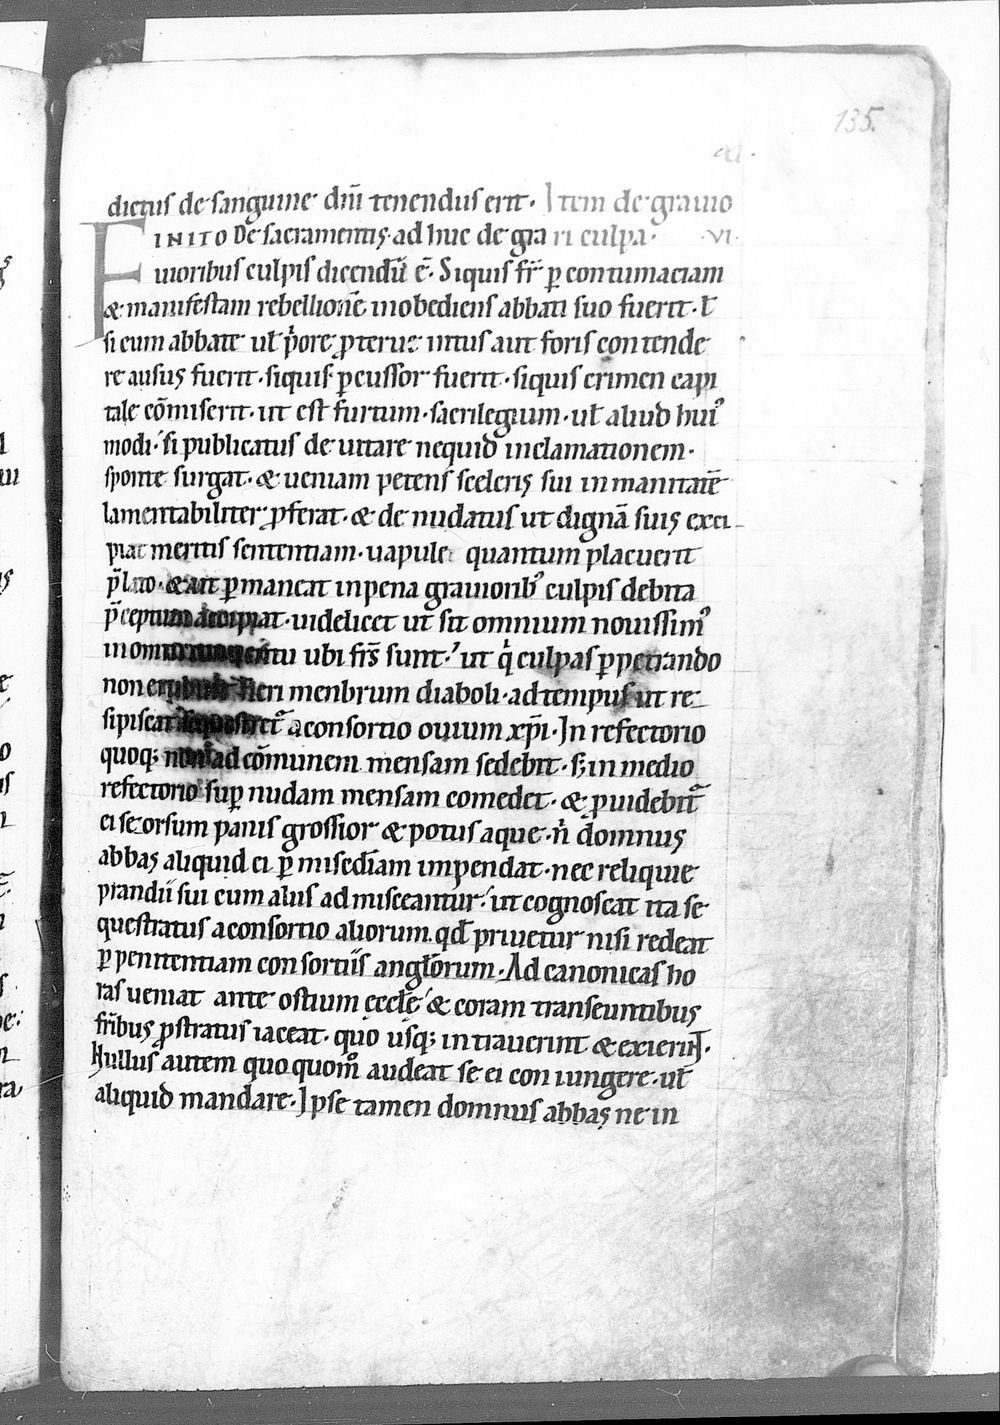 135.
dictus de sanguine dn̄i tenendus erit. Item de grauio
FINITO De sacramentis. ad huc de gra ri culpa. .VI.
uioribus culpis dicendū ē. Siquis fr̄ p̱ contumaciam
& manifestam rebellionē inobediens abbati suo fuerit. ł
si cum abbate uł p̓ore ꝓterue intus aut foris contende
re ausus fuerit. siquis p̱cussor fuerit. siquis crimen capi
tale cōmiserit. ut est furtum. sacrilegium. uł aliud hui᾽
modi. si publicatus de uitare nequid inclamationem.
sponte surgat. & ueniam petens sceleris sui inmanitatē
lamentabiliter ꝓferat. & de nudatus ut dignā suis exci-
piat meritis sententiam. uapulet quantum placuerit
p̄lato. & ait p̱maneat inpena grauiorib᾽ culpis debita
p̄ceptum accipiat. uidelicet ut sit omnium nouissim᾽
in omni conuentu ubi frs̄ sunt. ut q̓ culpas p̱petrando
non erubuit fieri menbrum diaboli. ad tempus ut re-
sipiscat sequestret᾽ aconsortio ouium xp̄i. In refectorio
quoq; non ad cōmunem mensam sedebit. s; in medio
refectorio sup̱ nudam mensam comedet. & ꝓuidebit᾽
ei seorsum panis grossior & potus aque. n̓ domnus
abbas aliquid ei p̱ misedīam impendat. nec reliquie
prandii sui cum aliis ad misceantur. ut cognoscat ita se
questratus aconsortio aliorum. qđ priuetur nisi redeat
p̱ penitentiam consortiis angłorum. Ad canonicas ho
ras ueniat ante ostium eccłe & coram transeuntibus
fribus ꝓstratus iaceat. quo usq; intrauerint & exierint.
Nullus autem quo quom̊ audeat se ei con iungere. uł
aliquid mandare. Ipse tamen domnus abbas ne in